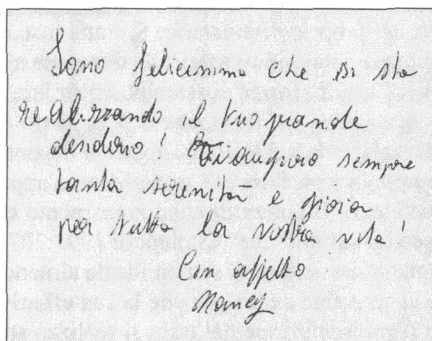 Sono felicissima che si sta
realizzando il tuo grande
desiderio! Ti auguro sempre
tanta serenità e gioia
per tutta la vostra vita!
Con affetto
Nancy